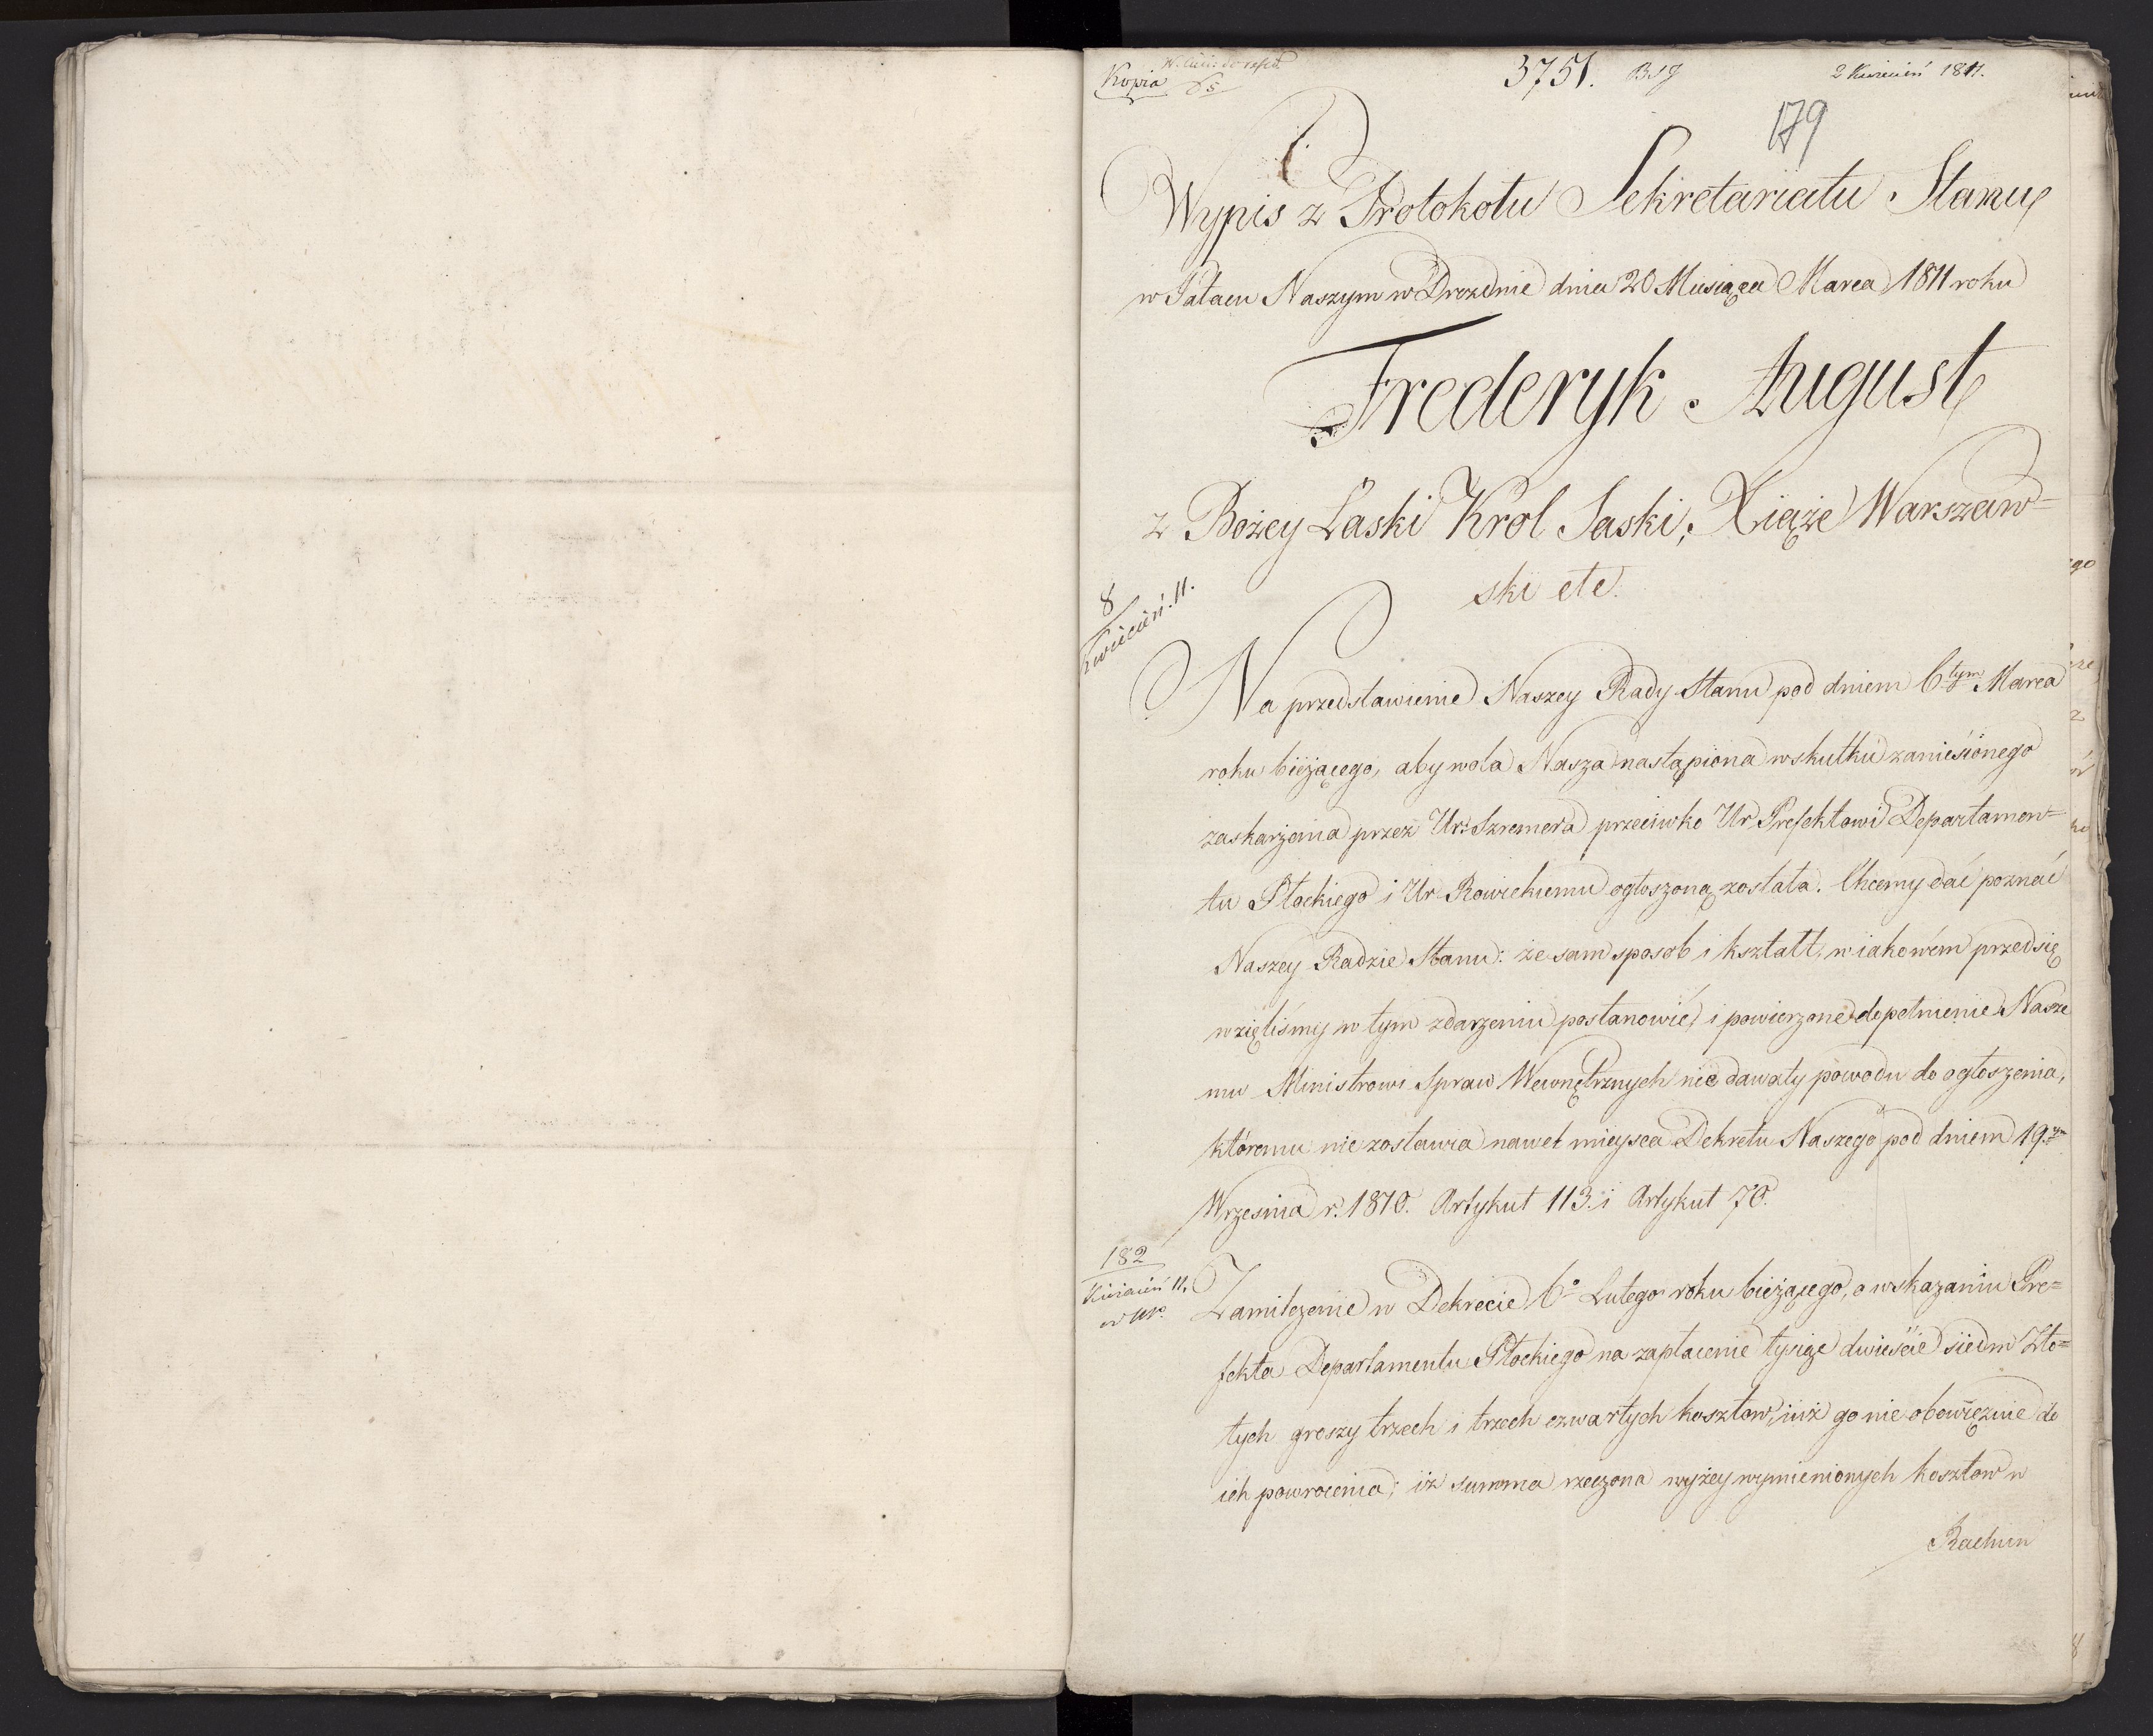 Kopia
3751. 2 Kwiecień 1811.
179
Wypis z Protokołu Sekretariatu Stanu
w Pałacu Naszym w Drezdnie dnia 20 Miesiąca Marca 1811 roku
Frederyk August
z Bożey Łaski Krol Saski, Xiąże Warszaw=
ski etc.
8
Kwiecień. 11.
Na przedstawienie Naszey Rady Stanu pod dniem 6tym Marca
roku bieżącego, aby wola Nasza nastąpiona w skutku zaniesionego
zaskarżenia przez Ur: Szremera przeciwko Ur Prefektowi Departamen=
tu Płockiego i Ur Rowickiemu ogłoszoną została. Chcemy dać poznać
Naszey Radzie Stanu: że sam sposob i kształt, w iakowém przedsię
wzięliśmy w tym zdarzeniu postanowić, i powierzone dopełnienie Nasze
mu Ministrowi Spraw Wewnętrznych nie dawały powodu do ogłoszenia,
któremu nie zostawia nawet mieysca Dekretu Naszego pod dniem 19.
Wrzesnia r. 1810. Artykuł 113. i Artykuł 70.
182
Kwiecień 11.
Zamilczenie w Dekrecie 6° Lutego roku bieżącego, o wskazaniu Pre=
fekta Departamentu Płockiego na zapłacenie tysiąc dwieście siedm Zło=
tych groszy trzech i trzech czwartych kosztow, iuż go nie obowięzuie do
ich powrocenia; iż summa rzeczona wyżey wymienionych kosztow w
Rachun